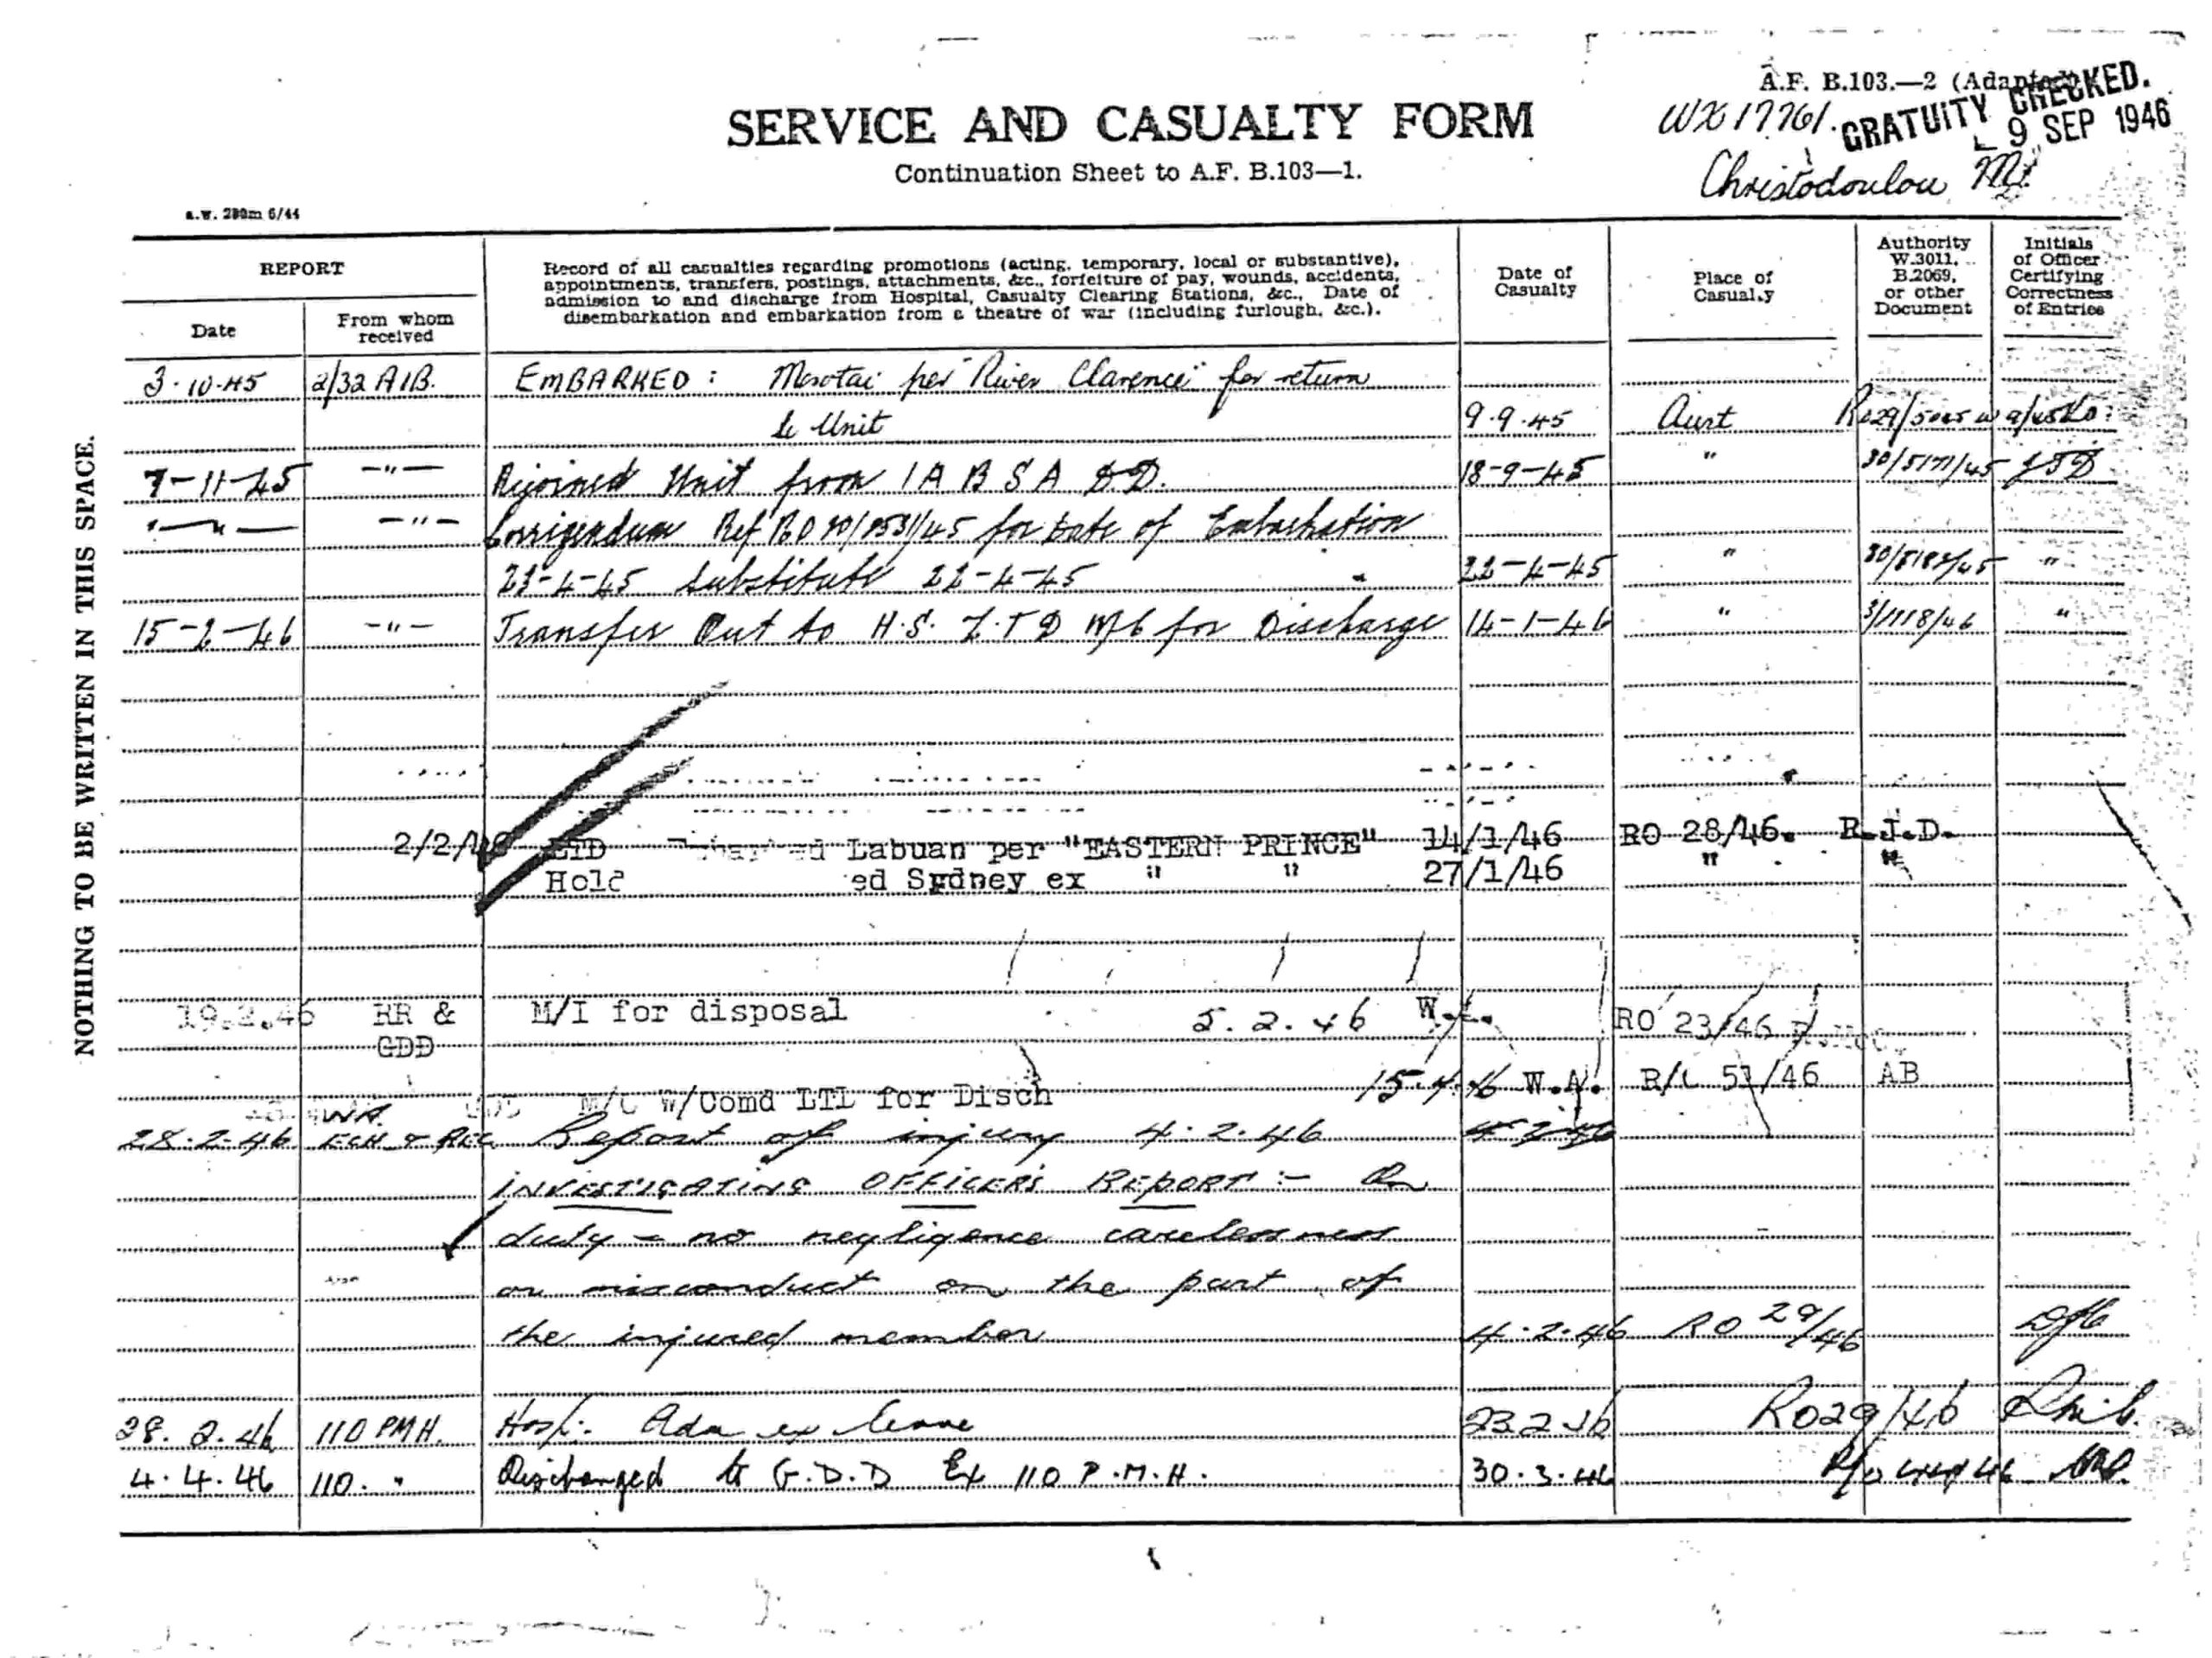 A.F. B.103.—2 (Adapted)
GRATUITY CHECKED.
9 SEP 1946
WX17761.
Christodoulou M.
SERVICE AND CASUALTY FORM
Continuation Sheet to A.F. B.103—1.
NOTHING TO BE WRITTEN IN THIS SPACE.
REPORT
Date
From whom received
Record of all casualties regarding promotions (acting, temporary, local or substantive),
appointments, transfers, postings, attachments, &c., forfeiture of pay, wounds, accidents,
admission to and discharge from Hospital, Casualty Clearing Stations, &c., Date of
disembarkation and embarkation from a theatre of war (including furlough, &c.).
Date of Casualty
Place of Casualty
Authority W.3011, B.2069, or other Document
Initials of Officer Certifying Correctness of Entries
3.10.45 2/32 AIB. EMBARKED: Morotai per "River Clarence" for return
to Unit 9.9.45 Aust
7-11-45 -"- Rejoined Unit from 1 A B S A D.D. 18-9-45 "
-"- -"- Corrigendum Ref RO for Date of Embarkation
23-4-45 Substitute 22-4-45 22-4-45 " "
15-2-46 -"- Transfer Out to H.S. L.T.D M/6 for Discharge 14-1-46 " 3/1118/46 "
2/2/46 LTD Labuan per "EASTERN PRINCE" 14/1/46 RO 28/46. R.J.D.
ed Sydney ex " " 27/1/46 " "
19.2.46 RR & GDD M/I for disposal 5.2.46 RO 23/46
W/Comd LTL for Disch 15.4.46 W.A. R/L 51/46 AB
28.2.46 ECH & REC Report of injury 4.2.46
INVESTIGATING OFFICERS REPORT:- On
duty - no negligence carelessness
or misconduct on the part of
the injured member 4.2.46 RO 29/46
28.2.46 110 PMH. Hosp. Adm ex leave 23 2 46 RO29/46
4.4.46 110. " Discharged to G.D.D Ex 110 P.M.H. 30.3.46